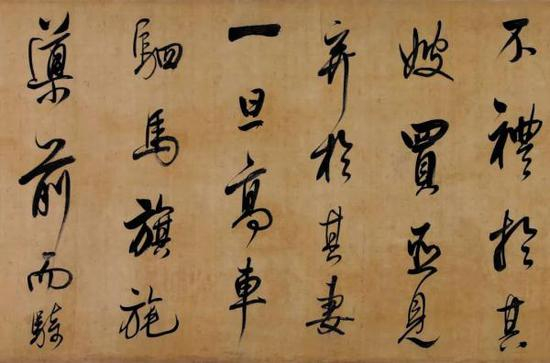 不禮於其
嫂買臣見
棄於其妻
一旦高車
駟馬旗旄
導前而騎